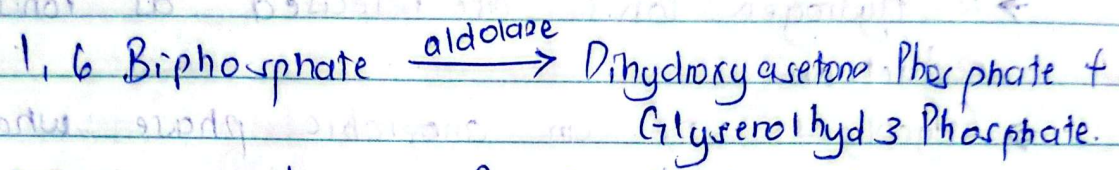 1, 6 Biphosphate aldolase → Dihydroxy asetone Phosphate +
Glyserolhyd 3 Phosphate.